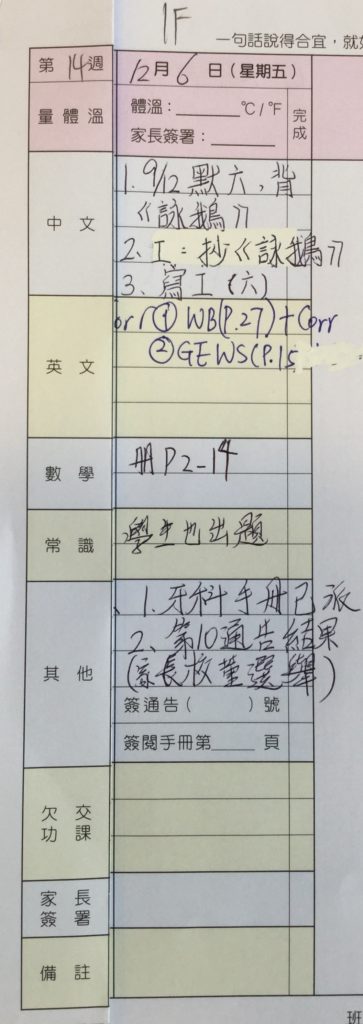 1F
一句話說得合宜，就如
第14週 12月6日(星期五)
量體溫 體溫：______°C/°F
家長簽署：______
完成
中文 1. 9/12 默六，背
《詠鵝》
2. 工：抄《詠鵝》
3. 寫工(六)
英文 ① WB(P.27)+Corr
② GEWS(P.15
數學 冊P2-14
常識 學生也出題
其他 1. 牙科手冊已派
2. 第10通告結果
(家長校董選舉)
簽通告(　　)號
簽閱手冊第____頁
欠交功課
家長簽署
備註
班